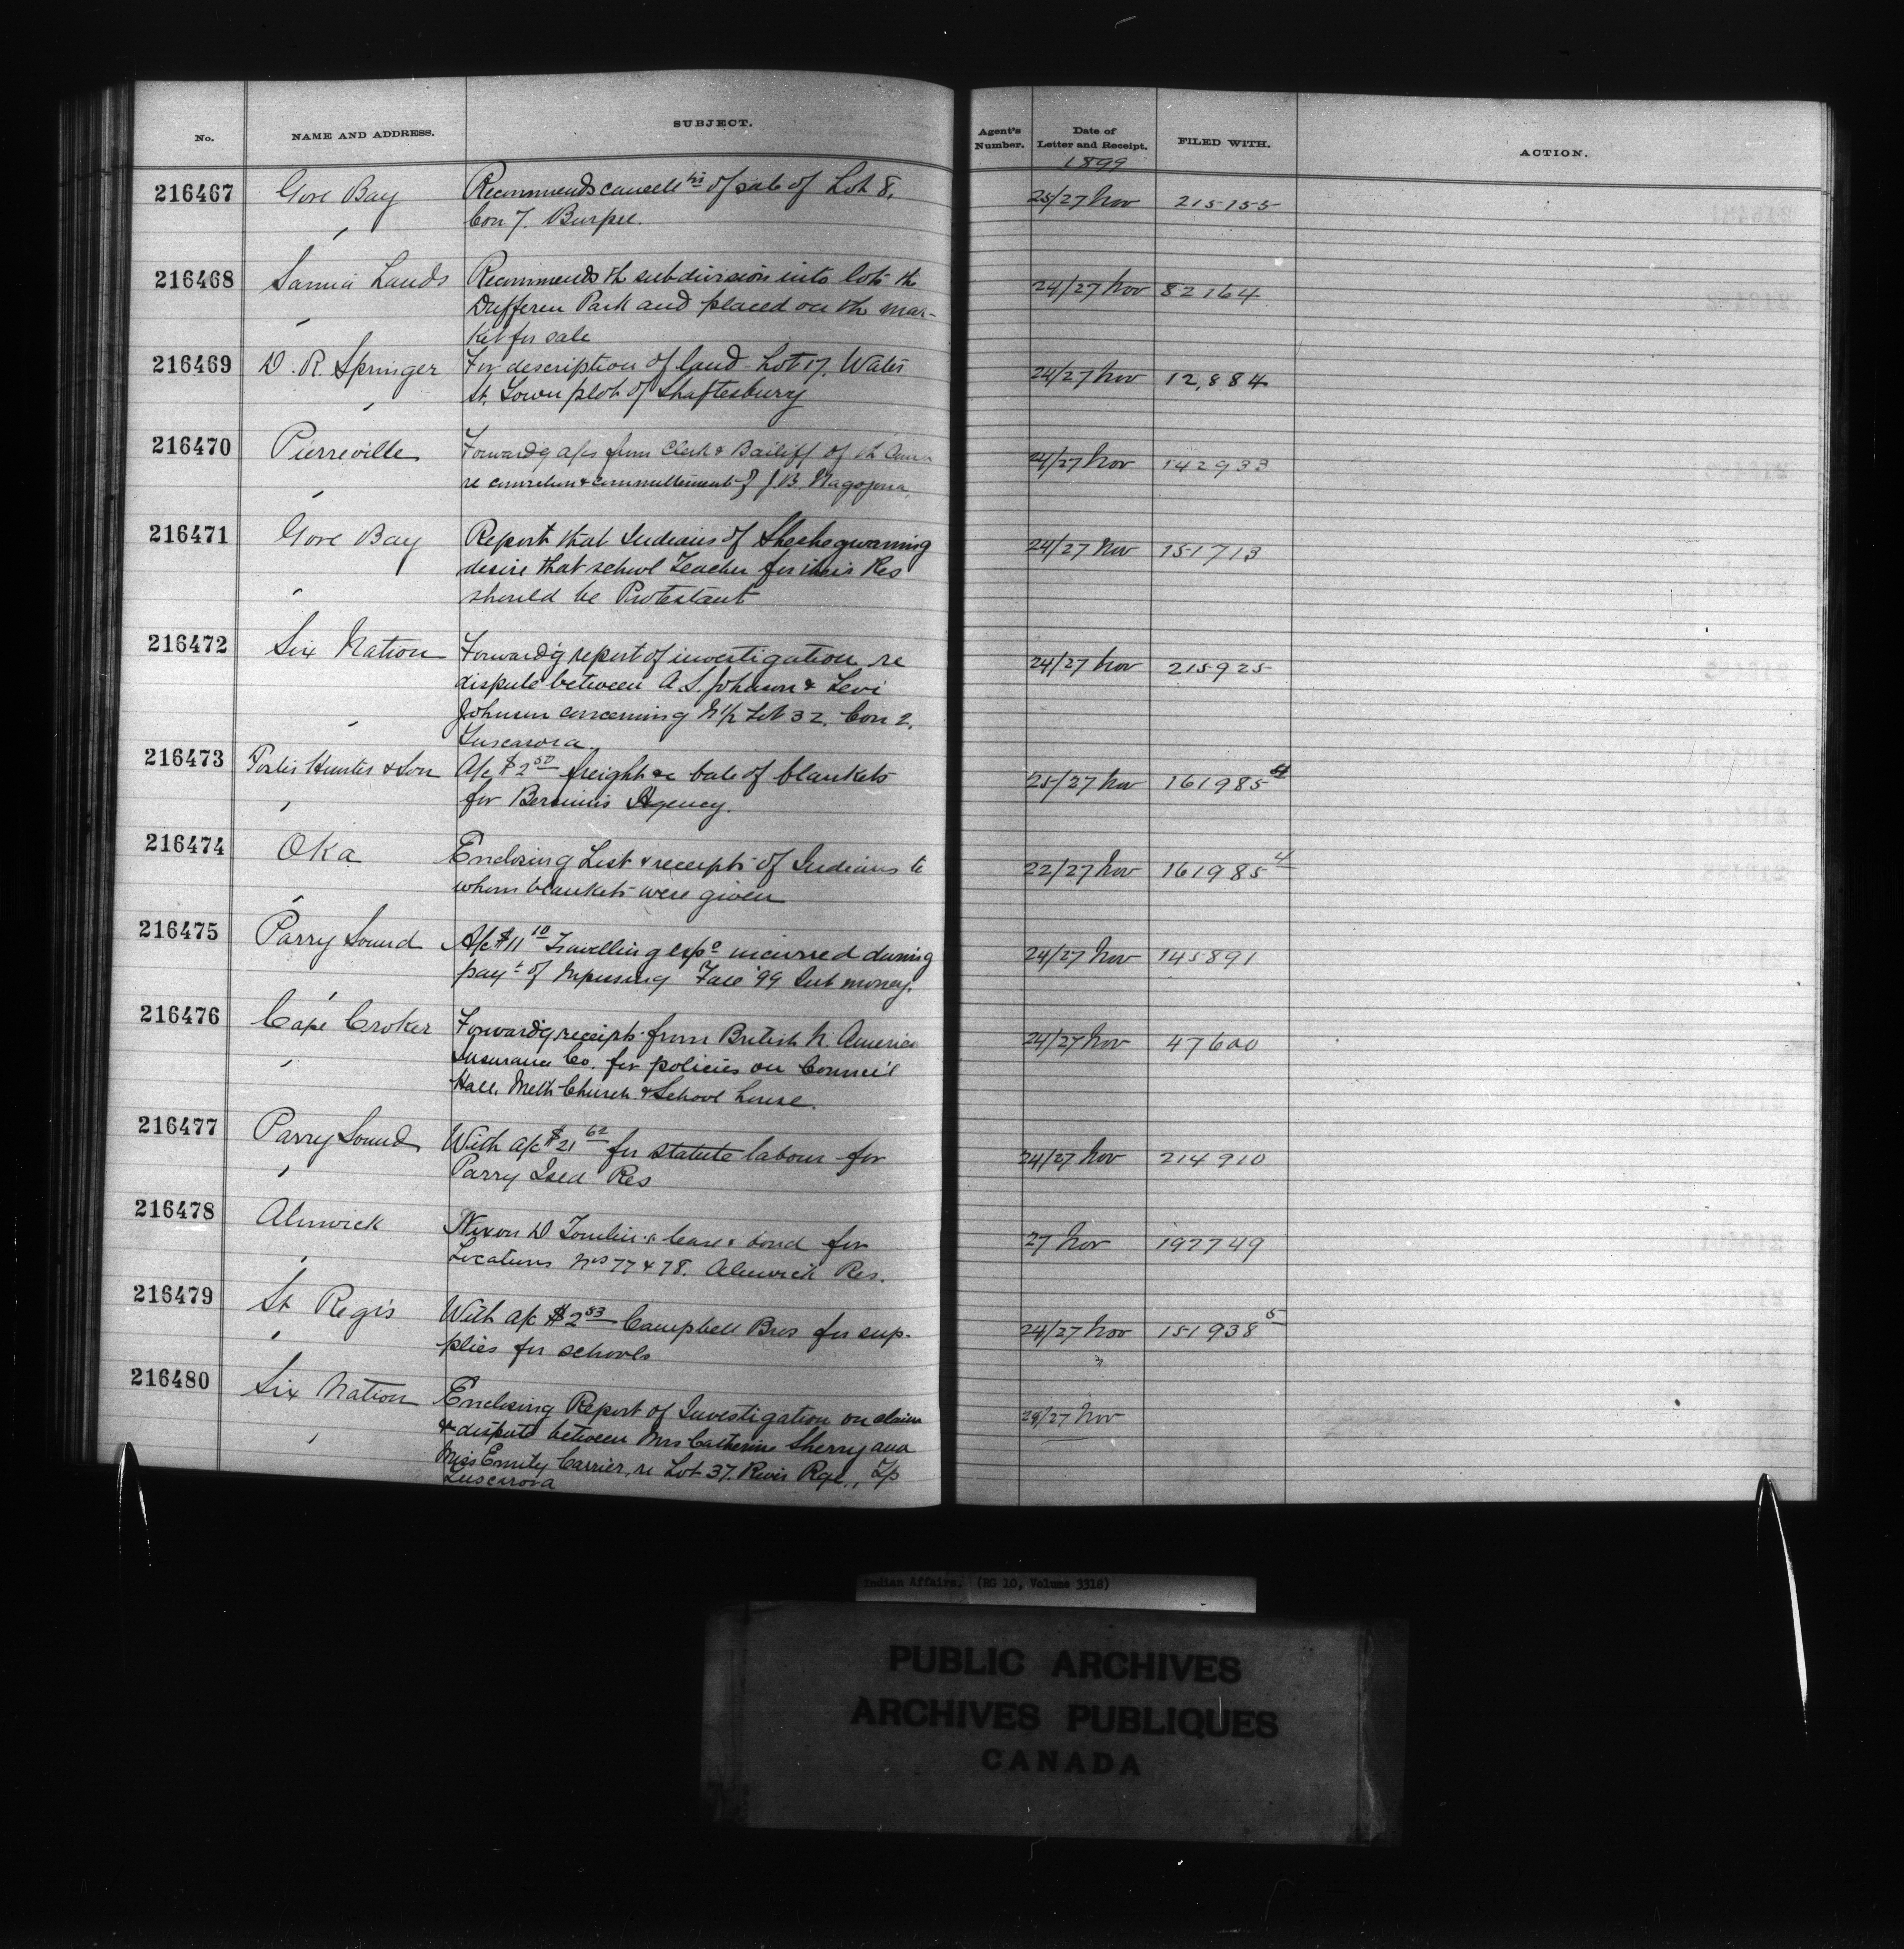 No. NAME AND ADDRESS. SUBJECT. Agent's Number. Date of Letter and Receipt. FILED WITH. ACTION.
1899
216467 Gore Bay Recommends cancell'tn of sale of Lot 8, 25/27 Nov 215155
Con 7. Burpee.
216468 Sarnia Lands Recommends th subdivision into lots th 24/27 Nov 82164
Dufferin Park and placed on th mar-
ket for sale
216469 D. R. Springer For description of land Lot 17, Water 24/27 Nov 12,884
St. Town plot of Shaftesbury
216470 Pierreville Forwardg a/cs from Clerk & Bailiff of th 24/27 Nov 142933
re conviction & committment of J. B.
216471 Gore Bay Report that Indians of Sheshegwaning 24/27 Nov 151713
desire that school Teacher for their Res
should be Protestant
216472 Six Nation Forward'g report of investigation re 24/27 Nov 215925
dispute between A. S. Johnson & Levi
Johnson concerning N 1/2 Lot 32, Con 2,
Tuscarora
216473 Hunter & Son A/c $2 50 freight bale of blankets 25/27 Nov 161985 4
for Bersimis Agency.
216474 Oka Enclosing List & receipts of Indians to 22/27 Nov 161985 4
whom blankets were given
216475 Parry Sound A/c $11 10 Travelling exps incurred during 24/27 Nov 145891
pay't of Nipissing Fall '99 Int money.
216476 Cape Croker Forward'g receipts from British N. America 24/27 Nov 47600
Insurance Co. for policies on Council
Hall, Meth Church & School house.
216477 Parry Sound With a/c $21 62 for statute labour for 24/27 Nov 214910
Parry Isld Res
216478 Alnwick Nixon D Tomlin's lease & bond for 27 Nov 197749
Locations Nos 77 & 78. Alnwick Res.
216479 St Regis With a/c $2 53 Campbell Bros for sup- 24/27 Nov 151938 5
plies for schools
216480 Six Nation Enclosing Report of Investigation on claim 24/27 Nov
& dispute between Mrs Catherine Sherry and
Miss Emily Carrier, re Lot 37. River Rge., Tp
Tuscarora
Indian Affairs. (RG 10, Volume 3318)
PUBLIC ARCHIVES
ARCHIVES PUBLIQUES
CANADA